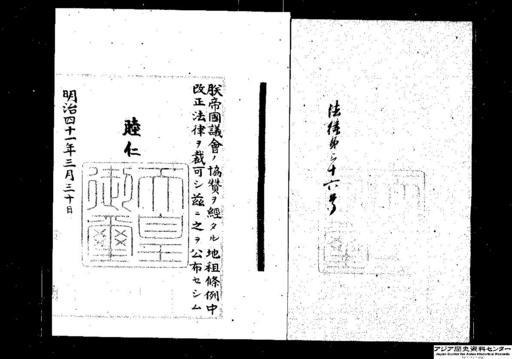 法律第三十六号
朕帝國議會ノ協贊ヲ經タル地租條例中
改正法律ヲ裁可シ茲ニ之ヲ公布セシム
睦仁
天皇
御璽
明治四十一年三月三十日
アジア歴史資料センター
Japan Center for Asian Historical Records